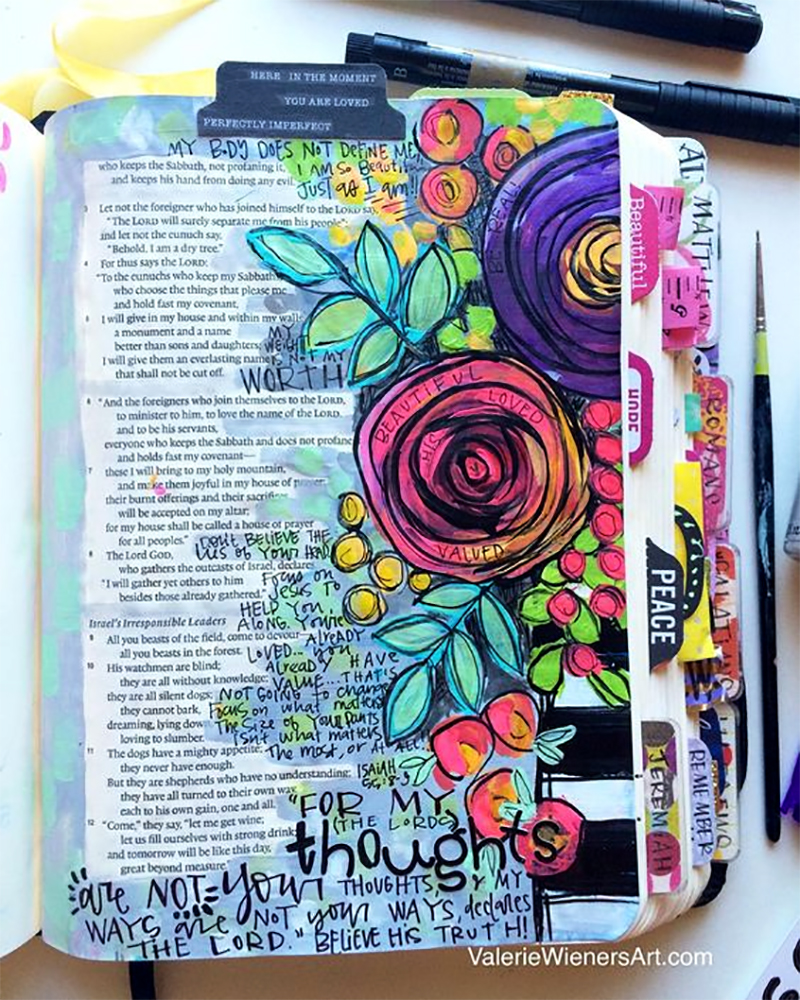 HERE IN THE MOMENT
YOU ARE LOVED
PERFECTLY IMPERFECT
MY BODY DOES NOT DEFINE ME!!
I AM SO Beautiful
JUST as I am!!
who keeps the Sabbath, not profaning it,
and keeps his hand from doing any evil.
3 Let not the foreigner who has joined himself to the LORD say,
"The LORD will surely separate me from his people";
and let not the eunuch say,
"Behold, I am a dry tree."
4 For thus says the LORD:
"To the eunuchs who keep my Sabbath
who choose the things that please me
and hold fast my covenant,
5 I will give in my house and within my walls
a monument and a name
better than sons and daughters;
I will give them an everlasting name
that shall not be cut off.
MY
WEIGHT
IS NOT MY
WORTH
6 "And the foreigners who join themselves to the LORD,
to minister to him, to love the name of the LORD,
and to be his servants,
everyone who keeps the Sabbath and does not profane
and holds fast my covenant—
7 these I will bring to my holy mountain,
and make them joyful in my house of prayer;
their burnt offerings and their sacrifices
will be accepted on my altar;
for my house shall be called a house of prayer
for all peoples."
8 The Lord GOD,
who gathers the outcasts of Israel, declares
"I will gather yet others to him
besides those already gathered."
DON'T BELIEVE THE
LIES OF YOUR HEAD
Focus on
JESUS TO
HELP YOU
ALONG. YOU'RE
ALREADY
LOVED... YOU
ALREADY HAVE
VALUE... THAT'S
NOT GOING to change
Focus on what matters
The Size of YOUR Pants
Isn't what matters
The most, or AT ALL!
Israel's Irresponsible Leaders
9 All you beasts of the field, come to devour—
all you beasts in the forest.
10 His watchmen are blind;
they are all without knowledge;
they are all silent dogs;
they cannot bark,
dreaming, lying down,
loving to slumber.
11 The dogs have a mighty appetite;
they never have enough.
But they are shepherds who have no understanding;
they have all turned to their own way,
each to his own gain, one and all.
12 "Come," they say, "let me get wine;
let us fill ourselves with strong drink
and tomorrow will be like this day,
great beyond measure."
ISAIAH
55:8-9
"FOR MY
(THE LORDS)
thoughts
are NOT your THOUGHTS, MY
WAYS are NOT your WAYS, declares
THE LORD." BELIEVE HIS TRUTH!
BE REAL!
BEAUTIFUL
LOVED
HIS
VALUED
Beautiful
HOPE
PEACE
JEREMIAH
MATTHEW
ROMANS
GALATIANS
REMEMBER
ValerieWienersArt.com